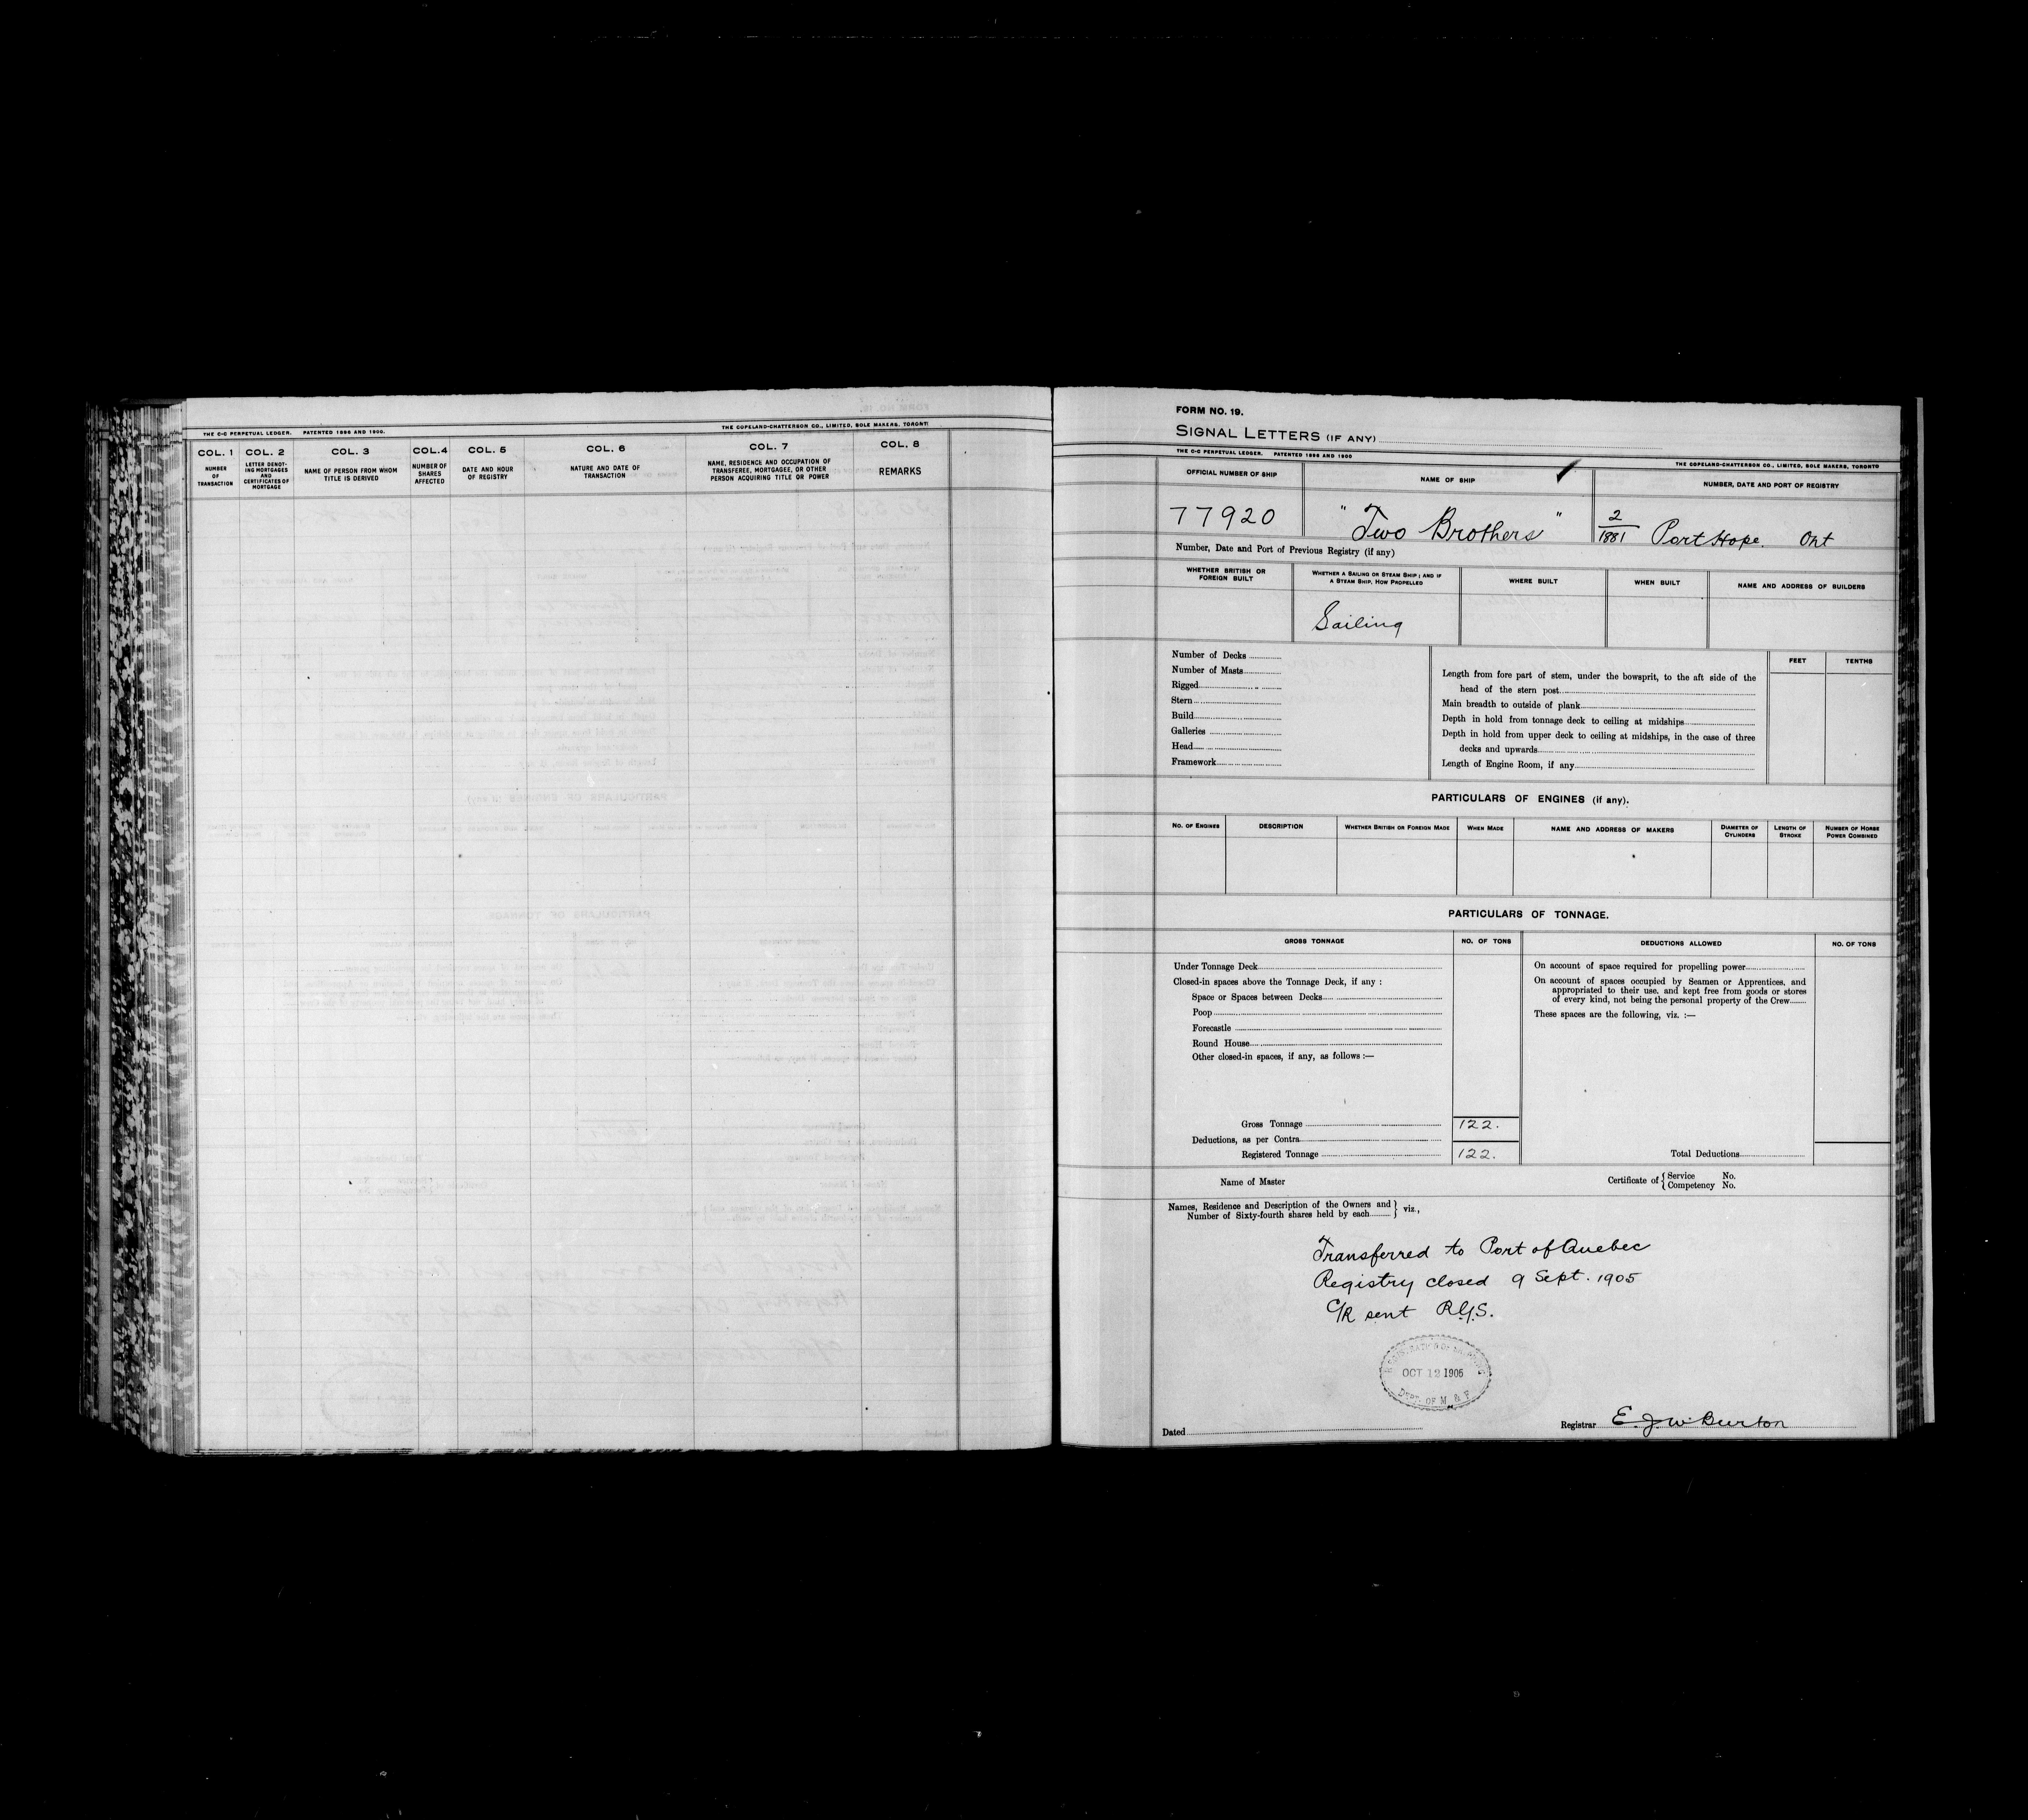 THE C-C PERPETUAL LEDGER. PATENTED 1896 AND 1900. THE COPELAND-CHATTERSON CO., LIMITED, SOLE MAKERS, TORONTO
COL. 1 COL. 2 COL. 3 COL. 4 COL. 5 COL. 6 COL. 7 COL. 8
NUMBER OF TRANSACTION
LETTER DENOTING MORTGAGES AND CERTIFICATES OF MORTGAGE
NAME OF PERSON FROM WHOM TITLE IS DERIVED
NUMBER OF SHARES AFFECTED
DATE AND HOUR OF REGISTRY
NATURE AND DATE OF TRANSACTION
NAME, RESIDENCE AND OCCUPATION OF TRANSFEREE, MORTGAGEE, OR OTHER PERSON ACQUIRING TITLE OR POWER
REMARKS
FORM NO. 19.
SIGNAL LETTERS (IF ANY)
THE C-C PERPETUAL LEDGER. PATENTED 1896 AND 1900 THE COPELAND-CHATTERSON CO., LIMITED, SOLE MAKERS, TORONTO
OFFICIAL NUMBER OF SHIP NAME OF SHIP NUMBER, DATE AND PORT OF REGISTRY
77920 "Two Brothers" 2/1881 Port Hope. Ont
Number, Date and Port of Previous Registry (if any)
WHETHER BRITISH OR FOREIGN BUILT
WHETHER A SAILING OR STEAM SHIP; AND IF A STEAM SHIP, HOW PROPELLED
WHERE BUILT WHEN BUILT NAME AND ADDRESS OF BUILDERS
Sailing
Number of Decks
Number of Masts
Rigged
Stern
Build
Galleries
Head
Framework
FEET TENTHS
Length from fore part of stem, under the bowsprit, to the aft side of the
head of the stern post
Main breadth to outside of plank
Depth in hold from tonnage deck to ceiling at midships
Depth in hold from upper deck to ceiling at midships, in the case of three
decks and upwards
Length of Engine Room, if any
PARTICULARS OF ENGINES (if any).
NO. OF ENGINES DESCRIPTION WHETHER BRITISH OR FOREIGN MADE WHEN MADE NAME AND ADDRESS OF MAKERS DIAMETER OF CYLINDERS LENGTH OF STROKE NUMBER OF HORSE POWER COMBINED
PARTICULARS OF TONNAGE.
GROSS TONNAGE NO. OF TONS DEDUCTIONS ALLOWED NO. OF TONS
Under Tonnage Deck
Closed-in spaces above the Tonnage Deck, if any :
Space or Spaces between Decks
Poop
Forecastle
Round House
Other closed-in spaces, if any, as follows :—
On account of space required for propelling power
On account of spaces occupied by Seamen or Apprentices, and
appropriated to their use, and kept free from goods or stores
of every kind, not being the personal property of the Crew
These spaces are the following, viz. :—
Gross Tonnage 122.
Deductions, as per Contra
Registered Tonnage 122. Total Deductions
Name of Master Certificate of { Service No.
Competency No.
Names, Residence and Description of the Owners and
Number of Sixty-fourth shares held by each } viz.,
Transferred to Port of Quebec
Registry closed 9 Sept. 1905
C/R sent R.G.S.
REGISTRATION OF SHIPPING
OCT 12 1905
DEPT. OF M & F
Dated Registrar E. J. W. Burton